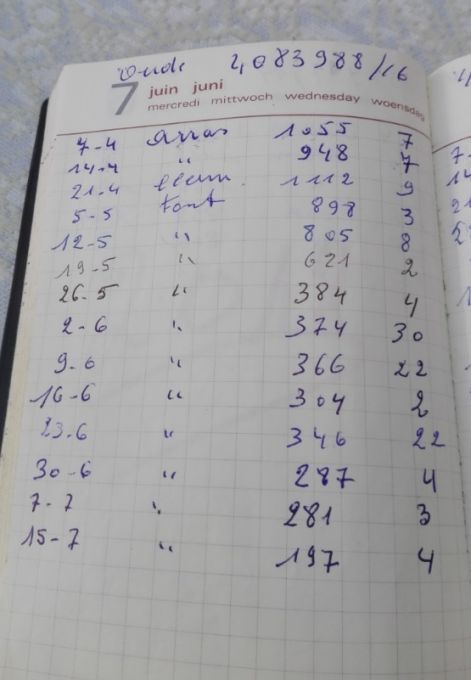 Oude 4083988/16
7 juin juni
mercredi mittwoch wednesday woensdag
7-4 Arras 1055 7
14-4 " 948 7
21-4 1112 9
5-5 Font 898 3
12-5 " 805 8
19-5 " 621 2
26-5 " 384 4
2-6 " 374 30
9-6 " 366 22
16-6 " 304 2
23-6 " 346 22
30-6 " 287 4
7-7 " 281 3
15-7 " 197 4